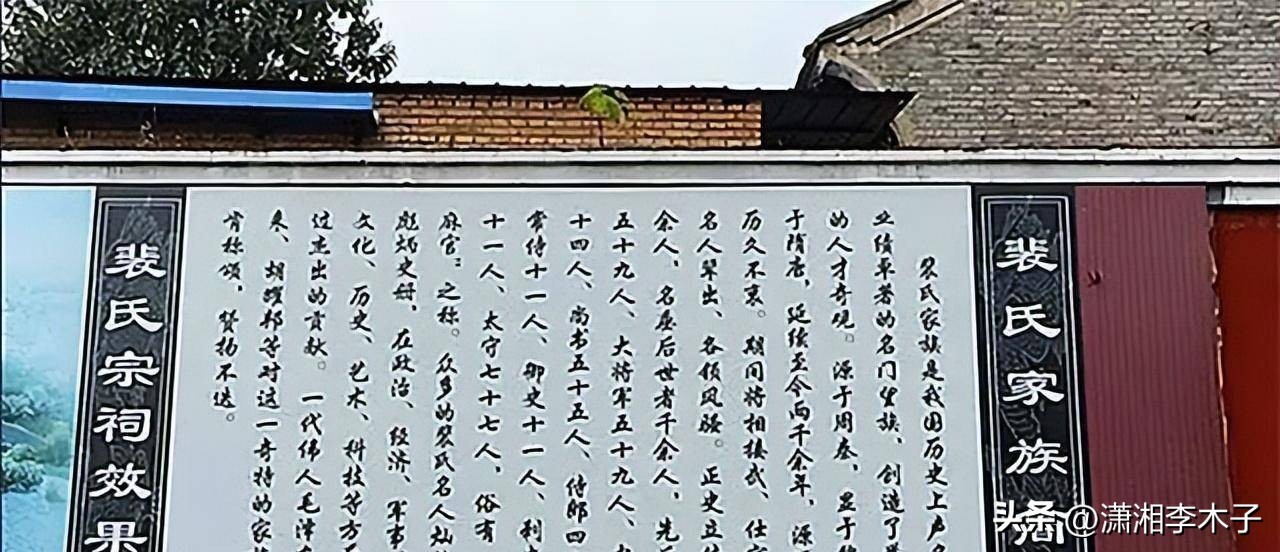 裴氏家族
裴氏家族是我国历史上声
业绩卓著的名门望族，创造了
的人才奇观。源于周秦，显于
于隋唐，延续至今两千余年，源
历久不衰。期间将相接武、仕
名人辈出、各领风骚。正史立
余人，名垂后世者千余人，先
五十九人、大将军五十九人、
十四人、尚书五十五人、侍郎四
常侍十一人、御史十一人、刺
十一人、太守七十七人，俗有
麻官”之称。众多的裴氏名人灿
彪炳史册，在政治、经济、军事
文化、历史、艺术、科技等方
过杰出的贡献。一代伟人毛泽
来、胡耀邦等对这一奇特的家
肯称颂，赞扬不迭。
裴氏宗祠效果
头条 @潇湘李木子